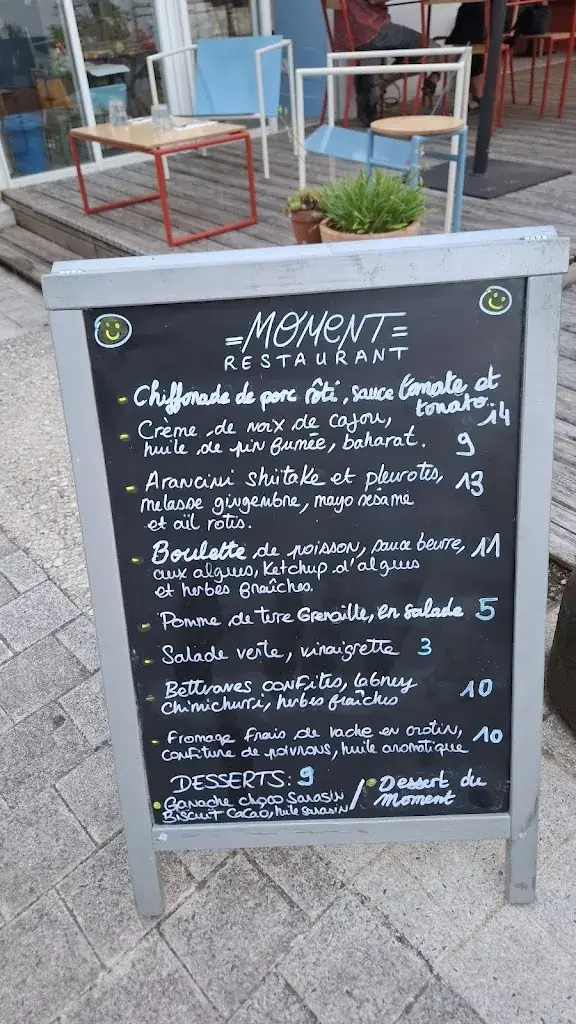 =MOMENT=
RESTAURANT
- Chiffonade de porc rôti, sauce tomate et
tonato.. 14
- Crème de noix de cajou,
huile de pin fumée, baharat. 9
- Arancini shiitake et pleurotes, 13
mélasse gingembre, mayo sésame
et aïl rotis.
- Boulette de poisson, sauce beurre, 11
aux algues, Ketchup d'algues
et herbes fraîches.
- Pomme de terre Grenaille, en salade 5
- Salade verte, vinaigrette 3
- Betteraves confites, labney 10
chimichurri, herbes fraîches
- Fromage frais de vache en crotin, 10
confiture de poivrons, huile aromatique
DESSERTS: 9
• Ganache choco Sarasin / • Dessert du
Biscuit Cacao, huile sarasin Moment